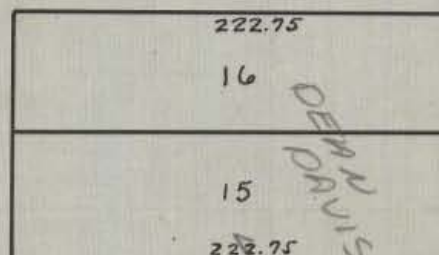 222.75
16
DEAN
DAVIS
15
222.75